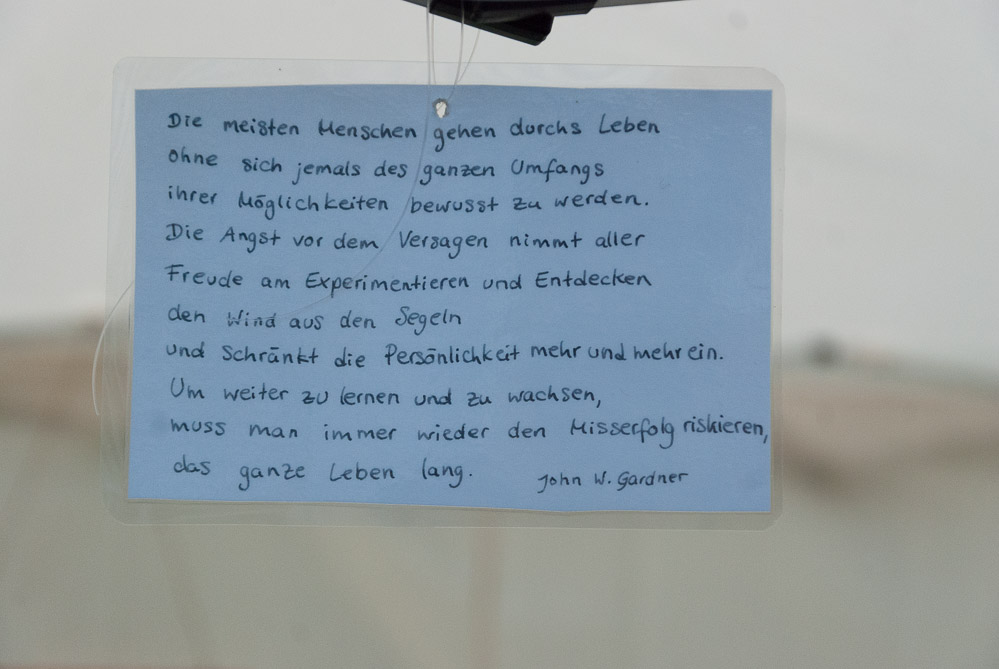 Die meisten Menschen gehen durchs Leben
ohne sich jemals des ganzen Umfangs
ihrer Möglichkeiten bewusst zu werden.
Die Angst vor dem Versagen nimmt aller
Freude am Experimentieren und Entdecken
den Wind aus den Segeln
und Schränkt die Persönlichkeit mehr und mehr ein.
Um weiter zu lernen und zu wachsen,
muss man immer wieder den Misserfolg riskieren,
das ganze Leben lang.
John W. Gardner